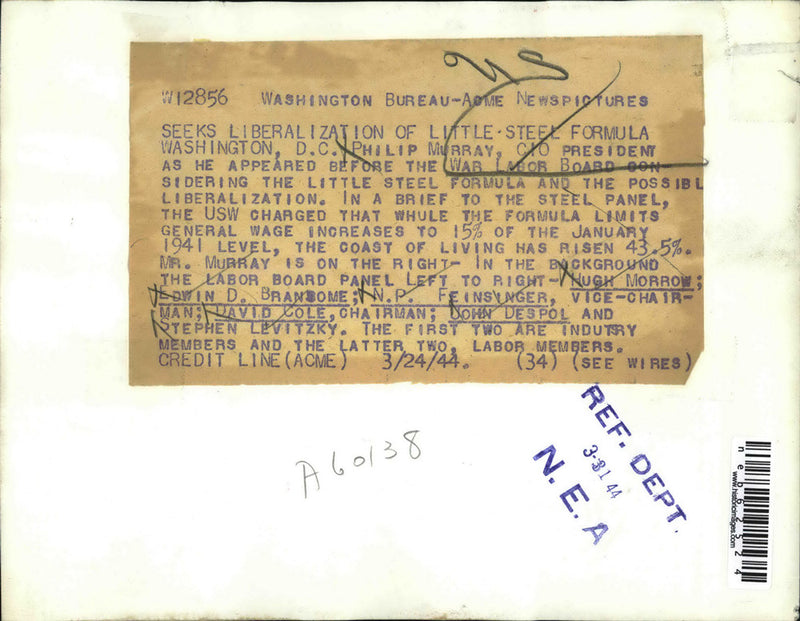 W12856 WASHINGTON BUREAU-ACME NEWSPICTURES
SEEKS LIBERALIZATION OF LITTLE STEEL FORMULA
WASHINGTON, D.C. PHILIP MURRAY, CIO PRESIDENT
AS HE APPEARED BEFORE THE WAR LABOR BOARD CON-
SIDERING THE LITTLE STEEL FORMULA AND THE POSSIBL
LIBERALIZATION. IN A BRIEF TO THE STEEL PANEL,
THE USW CHARGED THAT WHULE THE FORMULA LIMITS
GENERAL WAGE INCREASES TO 15% OF THE JANUARY
1941 LEVEL, THE COAST OF LIVING HAS RISEN 43.5%.
MR. MURRAY IS ON THE RIGHT- IN THE BACKGROUND
THE LABOR BOARD PANEL LEFT TO RIGHT- HUGH MORROW;
EDWIN D. BRANSOME; N.P. FEINSINGER, VICE-CHAIR-
MAN; DAVID COLE, CHAIRMAN; JOHN DESPOL AND
STEPHEN LEVITZKY. THE FIRST TWO ARE INDUTRY
MEMBERS AND THE LATTER TWO, LABOR MEMBERS.
CREDIT LINE (ACME) 3/24/44. (34) (SEE WIRES)
REF. DEPT.
3-31 44
N. E. A
A60138
neb62524
www.historicimages.com